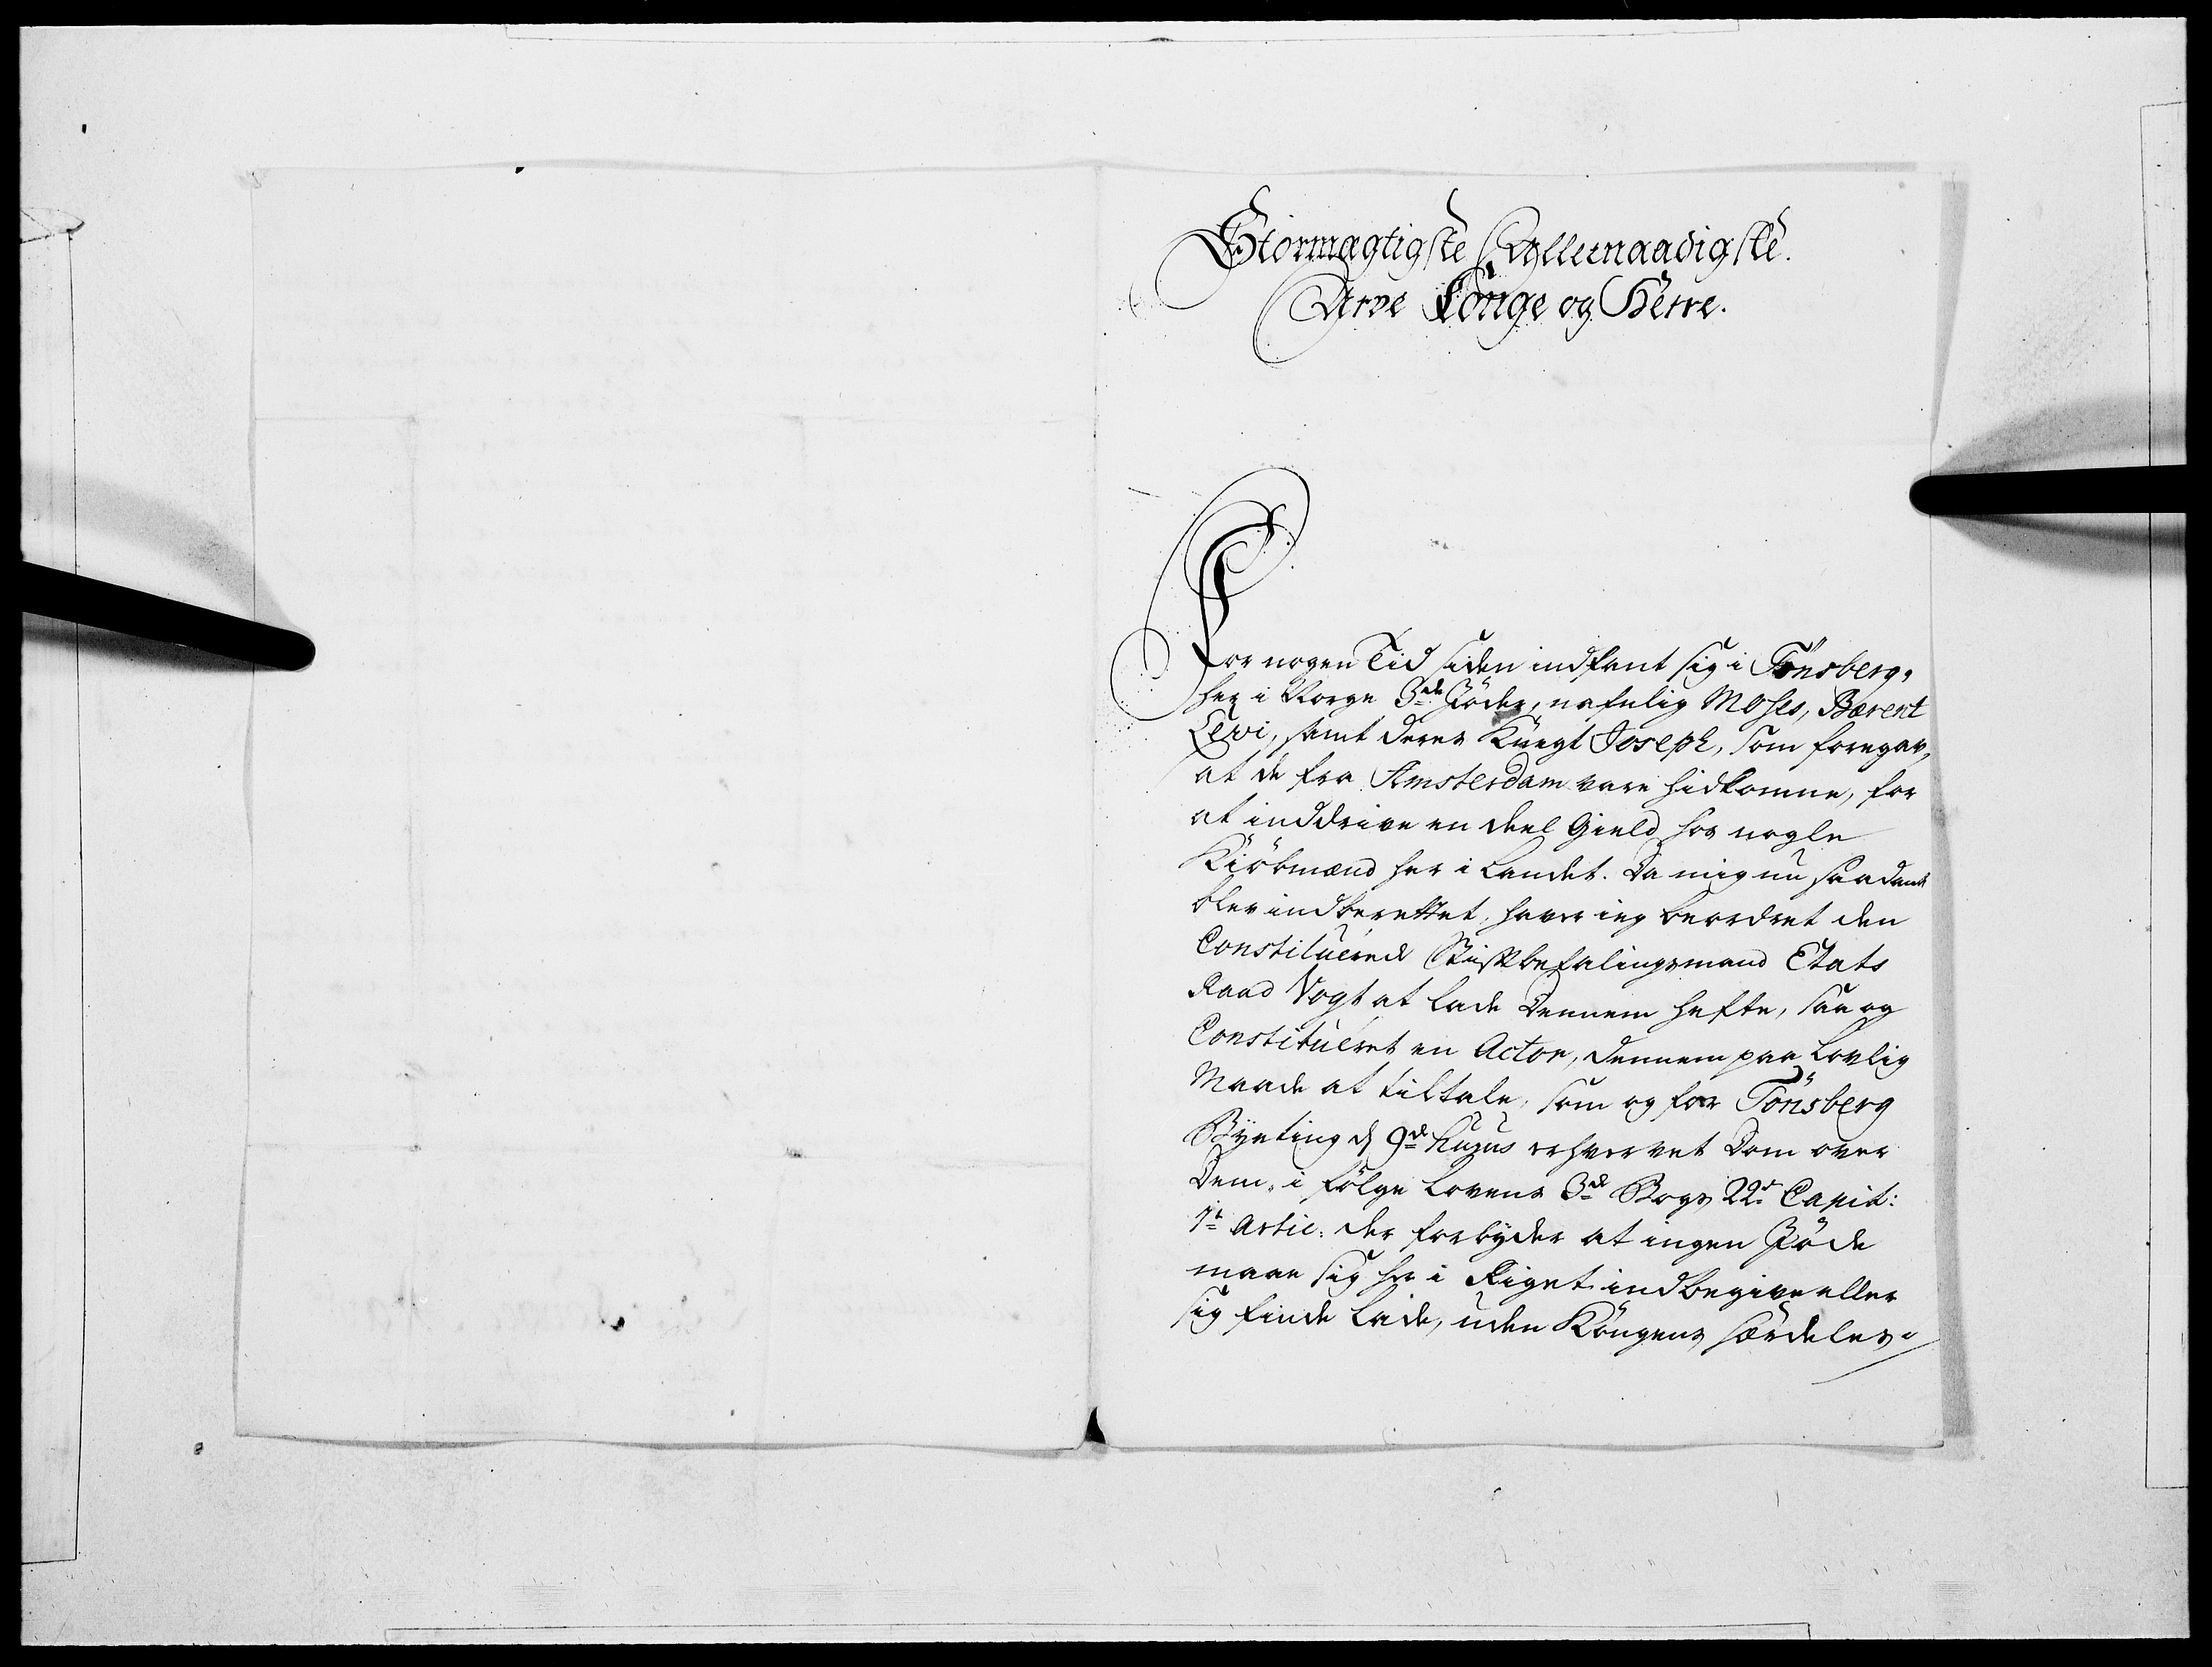 Stormægtigste Allernaadigste.
Arve Konge og Herre.
For nogen Tid siden indfant sig i Tönsberg,
her i Norge 3de Jöder, nafnlig Moses, Bærent
Levi, samt deres Knegt Joseph, som foregav,
at de fra Amsterdam vare hidkomne, for
at inddrive en deel Gield hos nogle
Kiöbmænd her i Landet. Da mig nu saadant
blev indberettet, haver ieg beordret den
Constituerede Stiftbefalingsmand Etats
Raad Vogt at lade Dennem hefte, saa og
Constitueret en Actor, dennem paa Lovlig
Maade at tiltale, som og for Tönsberg
Byeting d 9de hujus erhvervet Dom over
Dem, i fölge Lovens 3de Bogs 22de Capit:
1te Artic: der forbyder at ingen Jöde
maae sig her i Riget indbegive eller
sig finde lade, uden Kongens særdeles